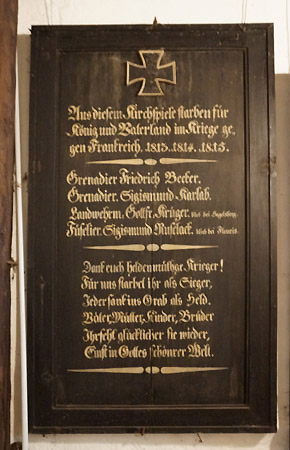 Aus diesem Kirchspiele starben für
König und Vaterland im Kriege ge,
gen Frankreich. 1813. 1814. 1815.
Grenadier Friedrich Becker.
Grenadier. Sigismund Karlab.
Landwehrm. Gottfr. Krüger. blieb bei Hagelsberg.
Füselier. Sigismund Muselack. blieb bei Fleurus.
Dank euch heldenmüthge Krieger!
Für uns starbet ihr als Sieger,
Jeder sank ins Grab als Held.
Väter, Mütter, Kinder, Brüder
Ihr seht glücklicher sie wieder,
Einst in Gottes schönrer Welt.